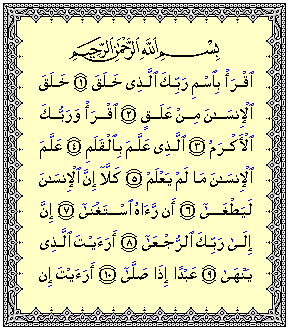 بِسْمِ ٱللَّهِ ٱلرَّحْمَٰنِ ٱلرَّحِيمِ
ٱقْرَأْ بِٱسْمِ رَبِّكَ ٱلَّذِى خَلَقَ ١ خَلَقَ
ٱلْإِنسَٰنَ مِنْ عَلَقٍ ٢ ٱقْرَأْ وَرَبُّكَ
ٱلْأَكْرَمُ ٣ ٱلَّذِى عَلَّمَ بِٱلْقَلَمِ ٤ عَلَّمَ
ٱلْإِنسَٰنَ مَا لَمْ يَعْلَمْ ٥ كَلَّآ إِنَّ ٱلْإِنسَٰنَ
لَيَطْغَىٰٓ ٦ أَن رَّءَاهُ ٱسْتَغْنَىٰٓ ٧ إِنَّ
إِلَىٰ رَبِّكَ ٱلرُّجْعَىٰٓ ٨ أَرَءَيْتَ ٱلَّذِى
يَنْهَىٰ ٩ عَبْدًا إِذَا صَلَّىٰٓ ١٠ أَرَءَيْتَ إِن